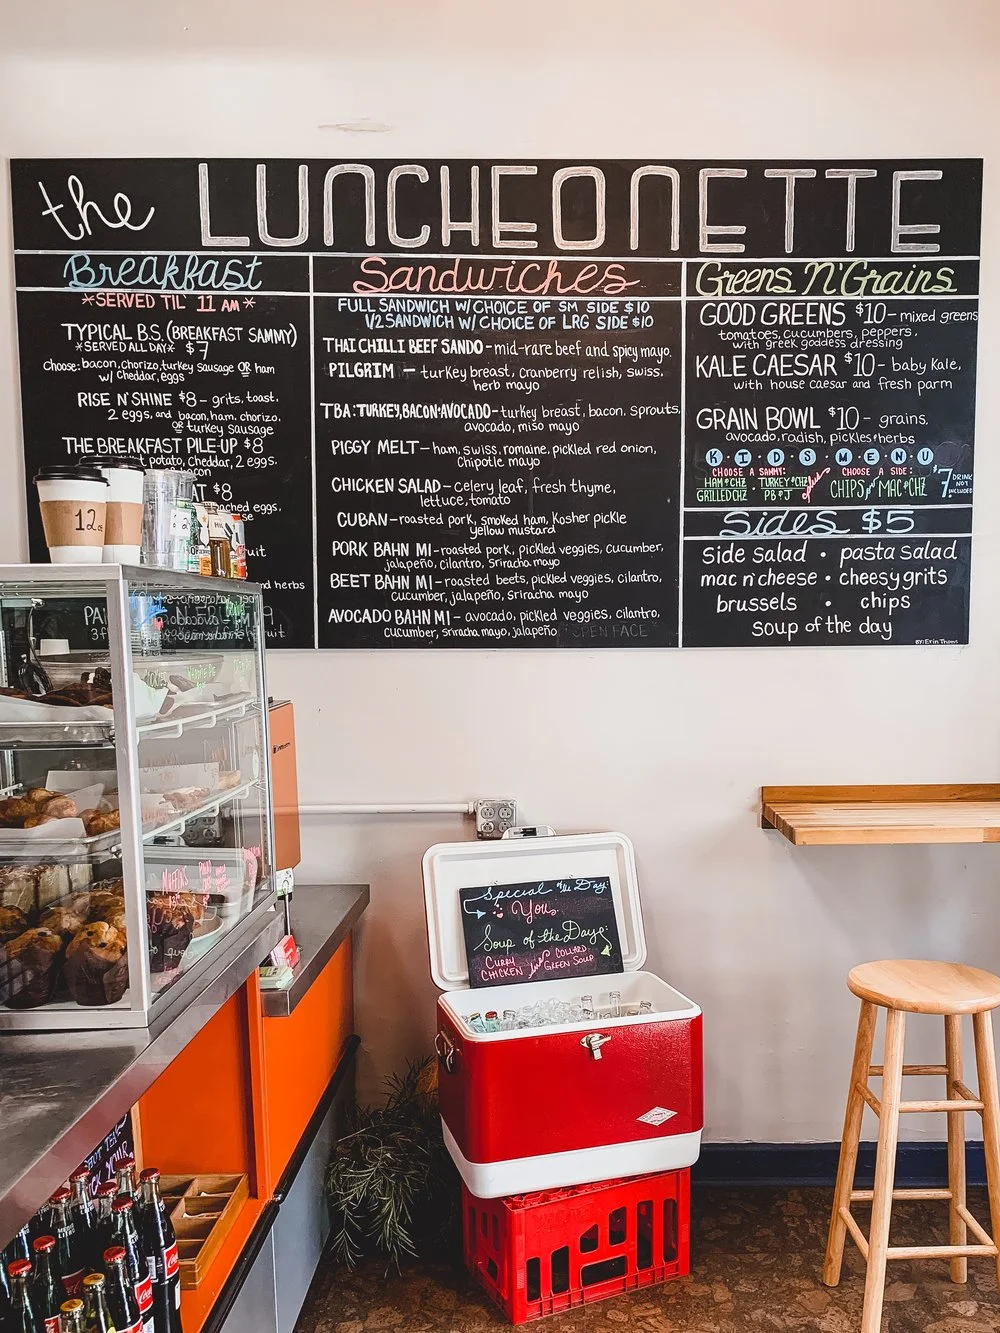 the LUNCHEONETTE
Breakfast
*SERVED TIL' 11 AM*
TYPICAL B.S. (BREAKFAST SAMMY)
*SERVED ALL DAY* $7
Choose: bacon, chorizo, turkey sausage OR ham
w/ cheddar, eggs
RISE N' SHINE $8 - grits, toast,
2 eggs, and bacon, ham, chorizo,
OR turkey sausage
THE BREAKFAST PILE-UP $8
potato, cheddar, 2 eggs,
bacon
$8
eggs,
nd herbs
Sandwiches
FULL SANDWICH W/ CHOICE OF SM SIDE $10
1/2 SANDWICH W/ CHOICE OF LRG SIDE $10
THAI CHILLI BEEF SANDO - mid-rare beef and spicy mayo.
PILGRIM - turkey breast, cranberry relish, swiss,
herb mayo
TBA: TURKEY, BACON+AVOCADO - turkey breast, bacon, sprouts,
avocado, miso mayo
PIGGY MELT - ham, swiss, romaine, pickled red onion,
Chipotle mayo
CHICKEN SALAD - celery leaf, fresh thyme,
lettuce, tomato
CUBAN - roasted pork, smoked ham, Kosher pickle
yellow mustard
PORK BAHN MI - roasted pork, pickled veggies, cucumber,
jalapeño, cilantro, sriracha mayo
BEET BAHN MI - roasted beets, pickled veggies, cilantro,
cucumber, jalapeño, sriracha mayo
AVOCADO BAHN MI - avocado, pickled veggies, cilantro,
cucumber, sriracha mayo, jalapeño OPEN FACE
Greens N' Grains
GOOD GREENS $10 - mixed greens
tomatoes, cucumbers, peppers,
with greek goddess dressing
KALE CAESAR $10 - baby Kale,
with house caesar and fresh parm
GRAIN BOWL $10 - grains,
avocado, radish, pickles+herbs
KIDS MENU
CHOOSE A SAMMY: plus CHOOSE A SIDE:
HAM+CHZ · TURKEY+CHZ
GRILLED CHZ · PB+J
CHIPS or MAC+CHZ
$7 DRINK NOT INCLUDED
Sides $5
side salad • pasta salad
mac n' cheese • cheesy grits
brussels • chips
soup of the day
BY: Erin Thoms
12oz
Special of the Day:
You
Soup of the Day:
CURRY CHICKEN
COLLARD GREEN SOUP
MUFFINS